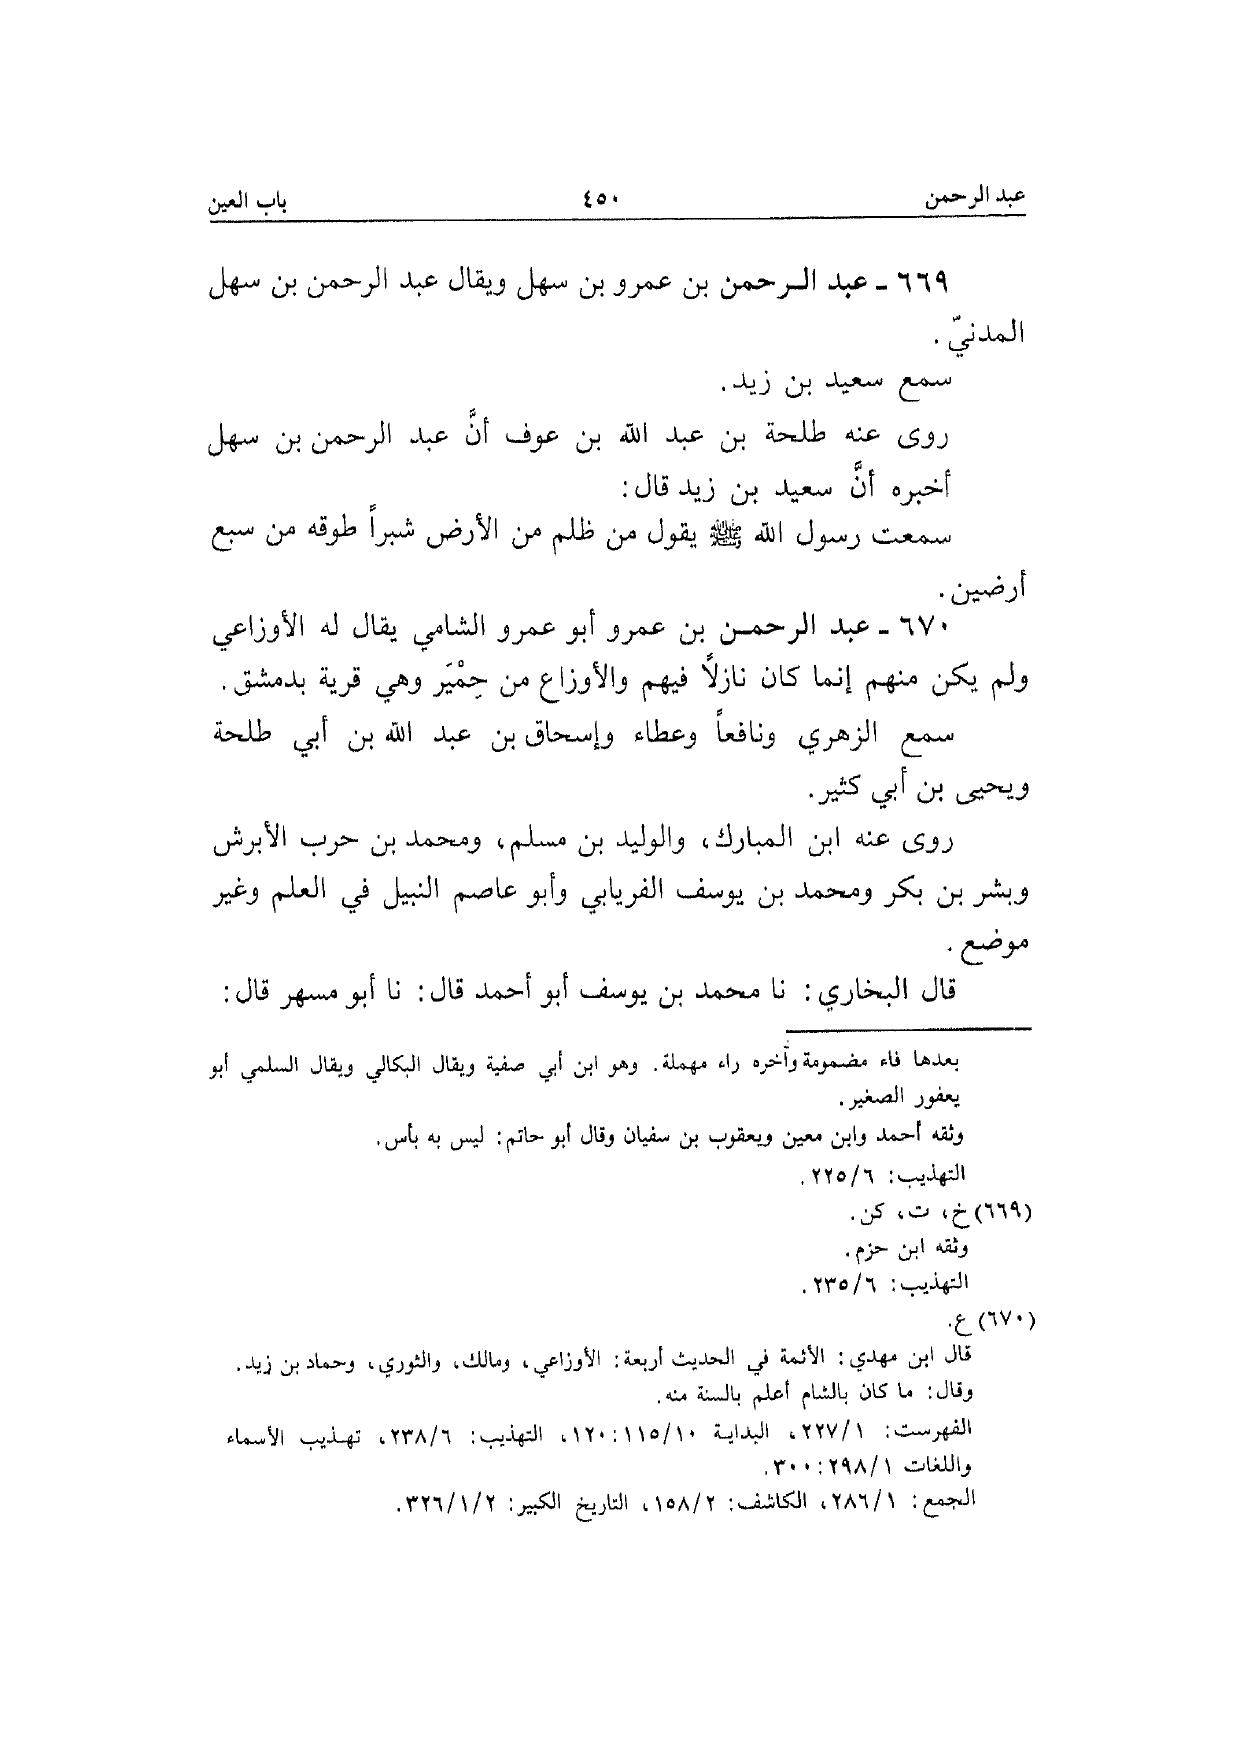 عبد الرحمن ٤٥٠ باب العين
٦٦٩ ـ عبد الرحمن بن عمرو بن سهل ويقال عبد الرحمن بن سهل
المدنيّ .
سمع سعيد بن زيد.
روى عنه طلحة بن عبد الله بن عوف أنَّ عبد الرحمن بن سهل
أخبره أنَّ سعيد بن زيد قال:
سمعت رسول الله ﷺ يقول من ظلم من الأرض شبراً طوقه من سبع
أرضين.
٦٧٠ ـ عبد الرحمن بن عمرو أبو عمرو الشامي يقال له الأوزاعي
ولم يكن منهم إنما كان نازلاً فيهم والأوزاع من حِمْيَر وهي قرية بدمشق.
سمع الزهري ونافعاً وعطاء وإسحاق بن عبد الله بن أبي طلحة
ويحيى بن أبي كثير.
روى عنه ابن المبارك، والوليد بن مسلم، ومحمد بن حرب الأبرش
وبشر بن بكر ومحمد بن يوسف الفريابي وأبو عاصم النبيل في العلم وغير
موضع.
قال البخاري: نا محمد بن يوسف أبو أحمد قال: نا أبو مسهر قال:
بعدها فاء مضمومة وآخره راء مهملة. وهو ابن أبي صفية ويقال البكالي ويقال السلمي أبو
يعفور الصغير.
وثقه أحمد وابن معين ويعقوب بن سفيان وقال أبو حاتم: ليس به بأس.
التهذيب: ٢٢٥/٦.
(٦٦٩) خ، ت، كن.
وثقه ابن حزم.
التهذيب: ٢٣٥/٦.
(٦٧٠) ع.
قال ابن مهدي: الأئمة في الحديث أربعة: الأوزاعي، ومالك، والثوري، وحماد بن زيد.
وقال: ما كان بالشام أعلم بالسنة منه.
الفهرست: ٢٢٧/١، البداية ١١٥/١٠: ١٢٠، التهذيب: ٢٣٨/٦، تهذيب الأسماء
واللغات ٢٩٨/١: ٣٠٠.
الجمع: ٢٨٦/١، الكاشف: ١٥٨/٢، التاريخ الكبير: ٣٢٦/١/٢.